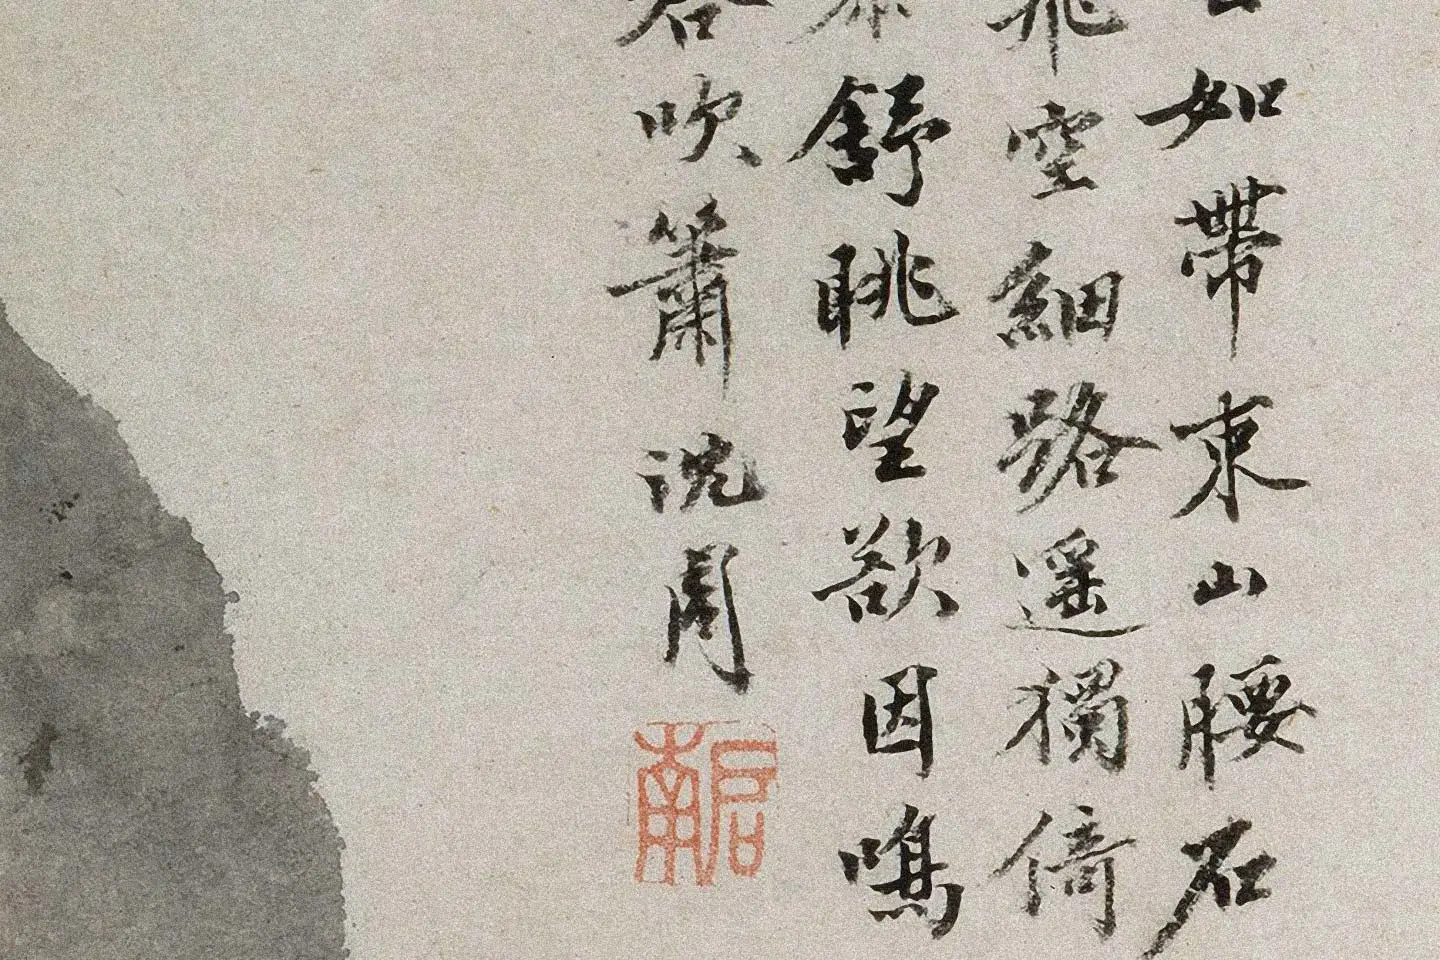 如帶束山腰石
飛空細路遙獨倚
舒眺望欲因鳴
吹簫沈周
启南